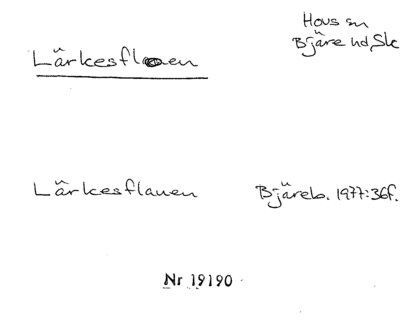 Hovs sn
Bjäre hd, Sk
Lärkesflauen
Lärkesflauen
Bjäreb. 1977:36f.
Nr 19190